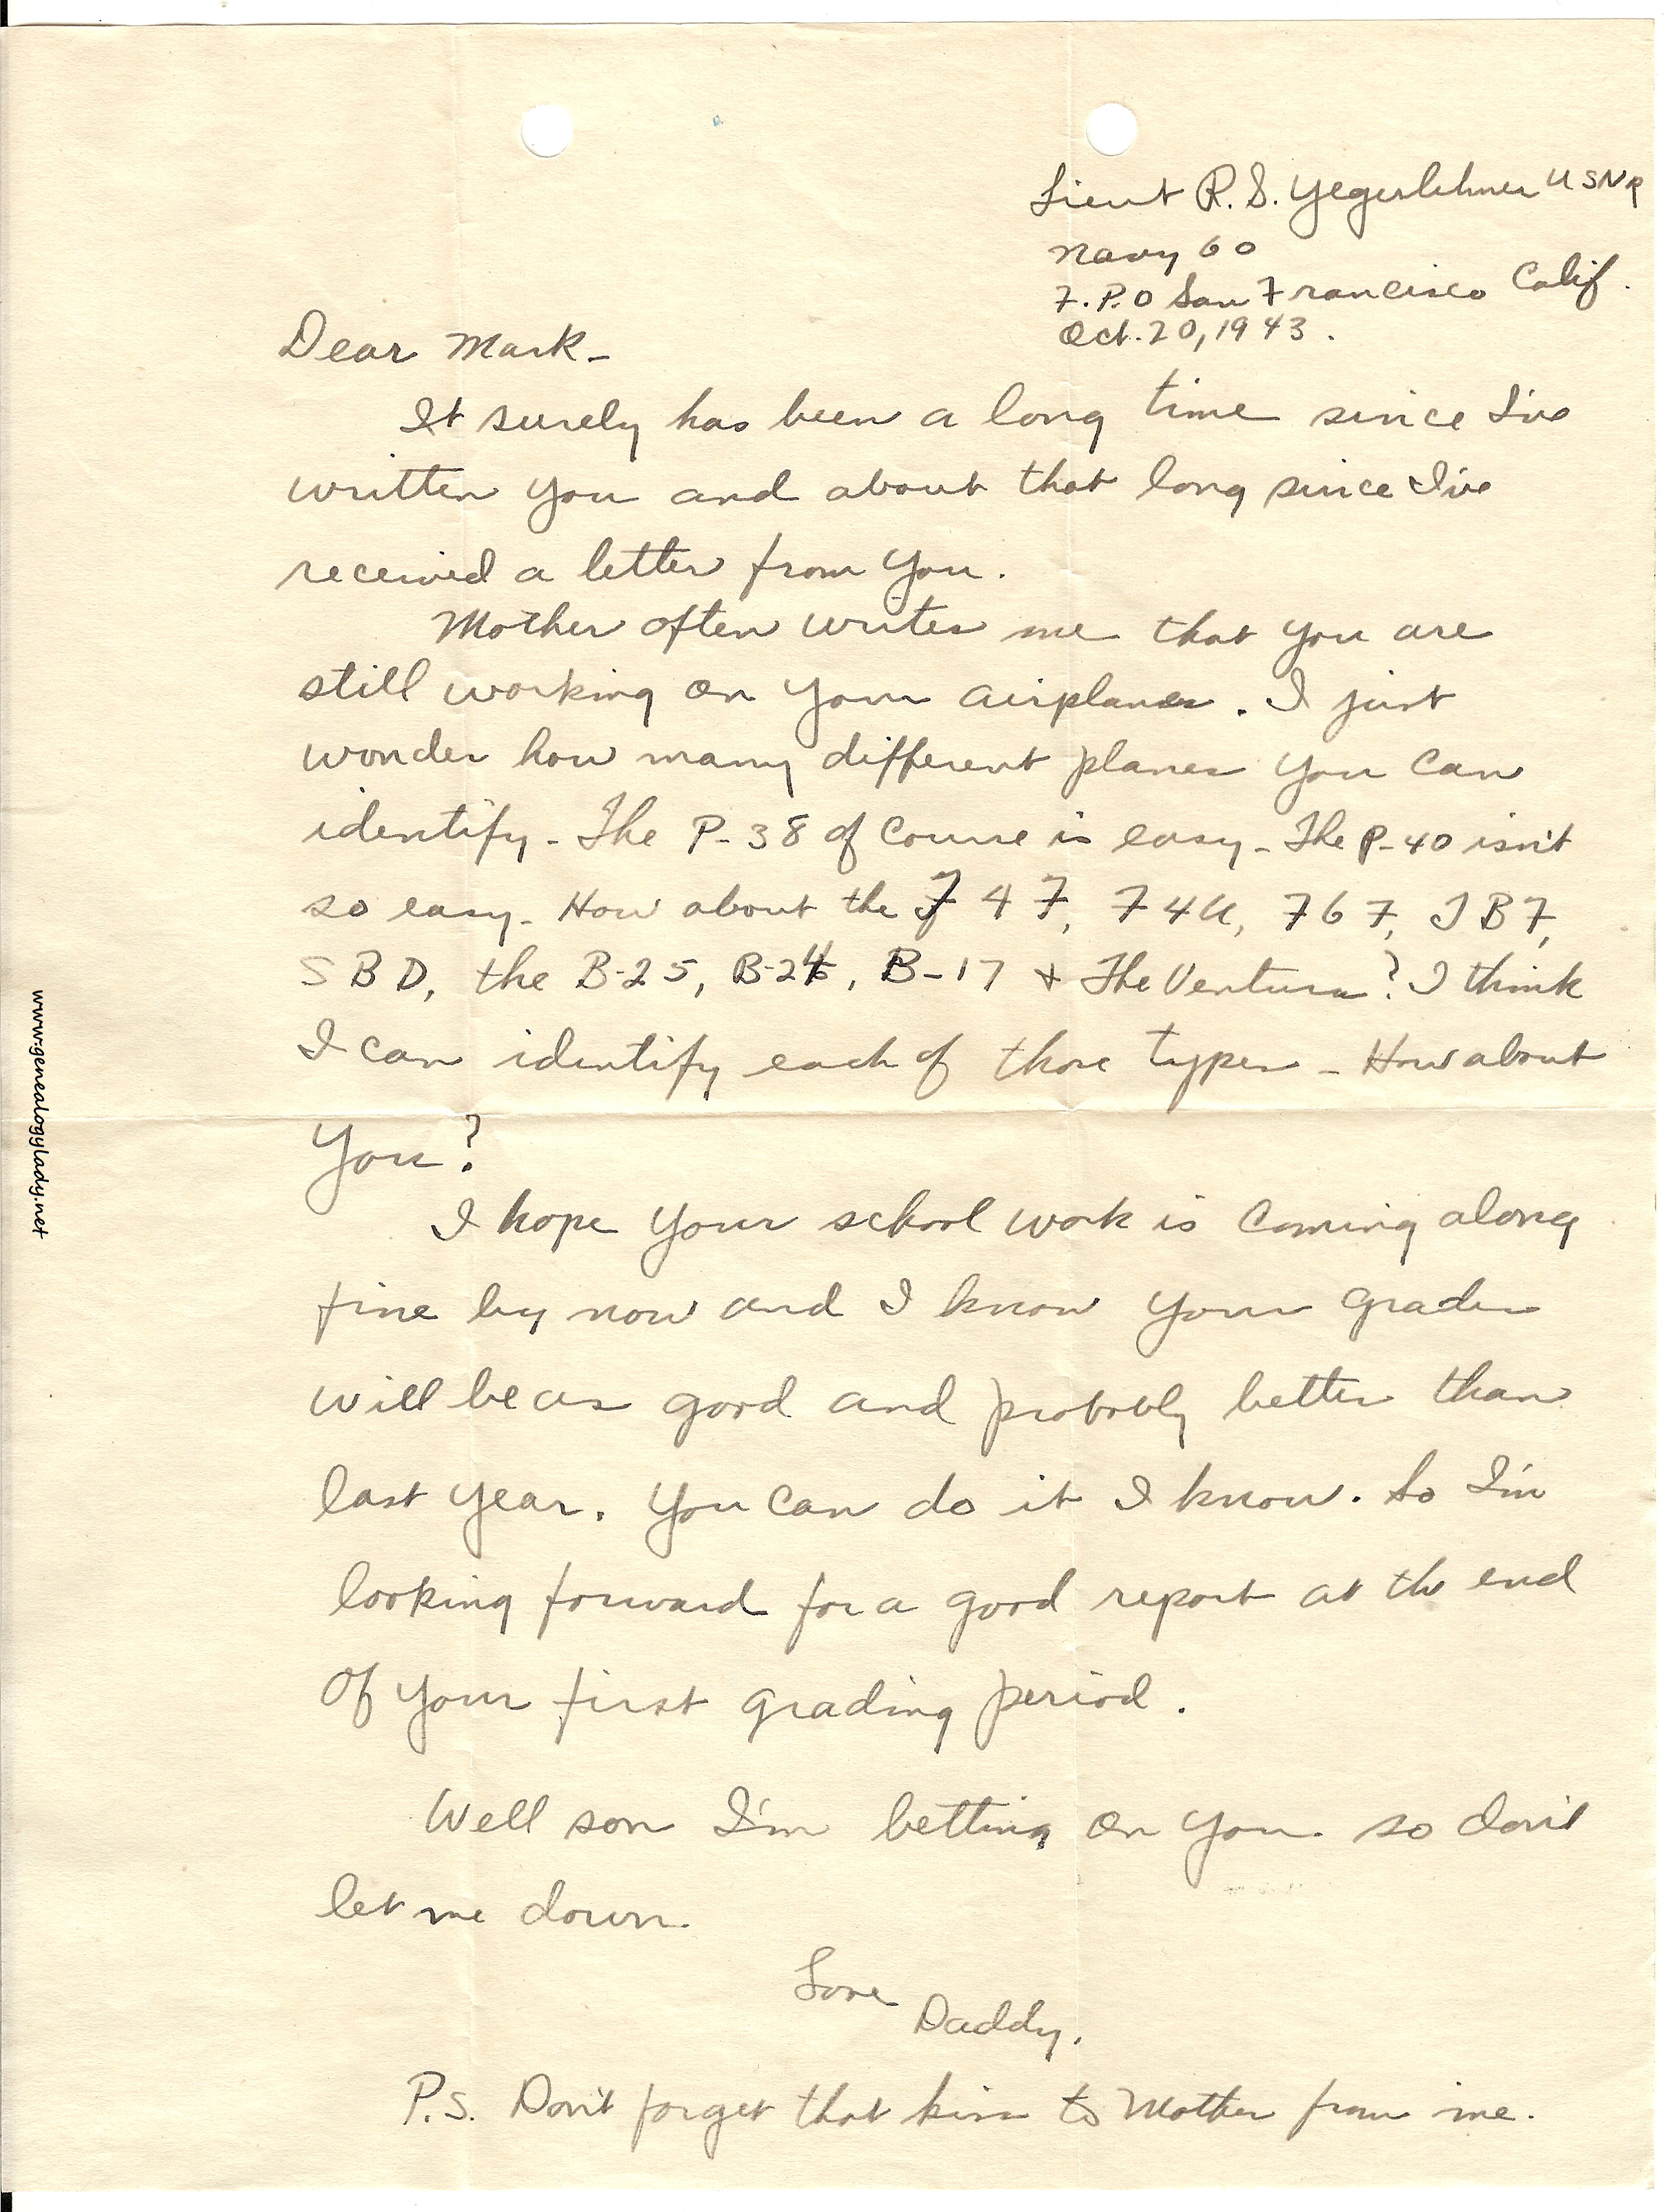 Lieut R. S. Yegerlehner USNR
Navy 60
F.P.O San Francisco Calif.
Oct. 20, 1943.
Dear Mark-
It surely has been a long time since I've
written you and about that long since I've
received a letter from you.
Mother often writes me that you are
still working on your airplanes. I just
wonder how many different planes you can
identify- The P-38 of course is easy- The P-40 isn't
so easy- How about the F4F, F4U, F6F, TBF,
SBD, the B-25, B-24, B-17 + The Ventura? I think
I can identify each of those types- How about
you?
I hope your school work is coming along
fine by now and I know your grades
will be as good and probobly better than
last year. You can do it I know. So I'm
looking forward for a good report at the end
of your first grading period.
Well son I'm betting on you so don't
let me down.
Love
Daddy.
P.S. Don't forget that kiss to Mother from me.
www.genealogylady.net